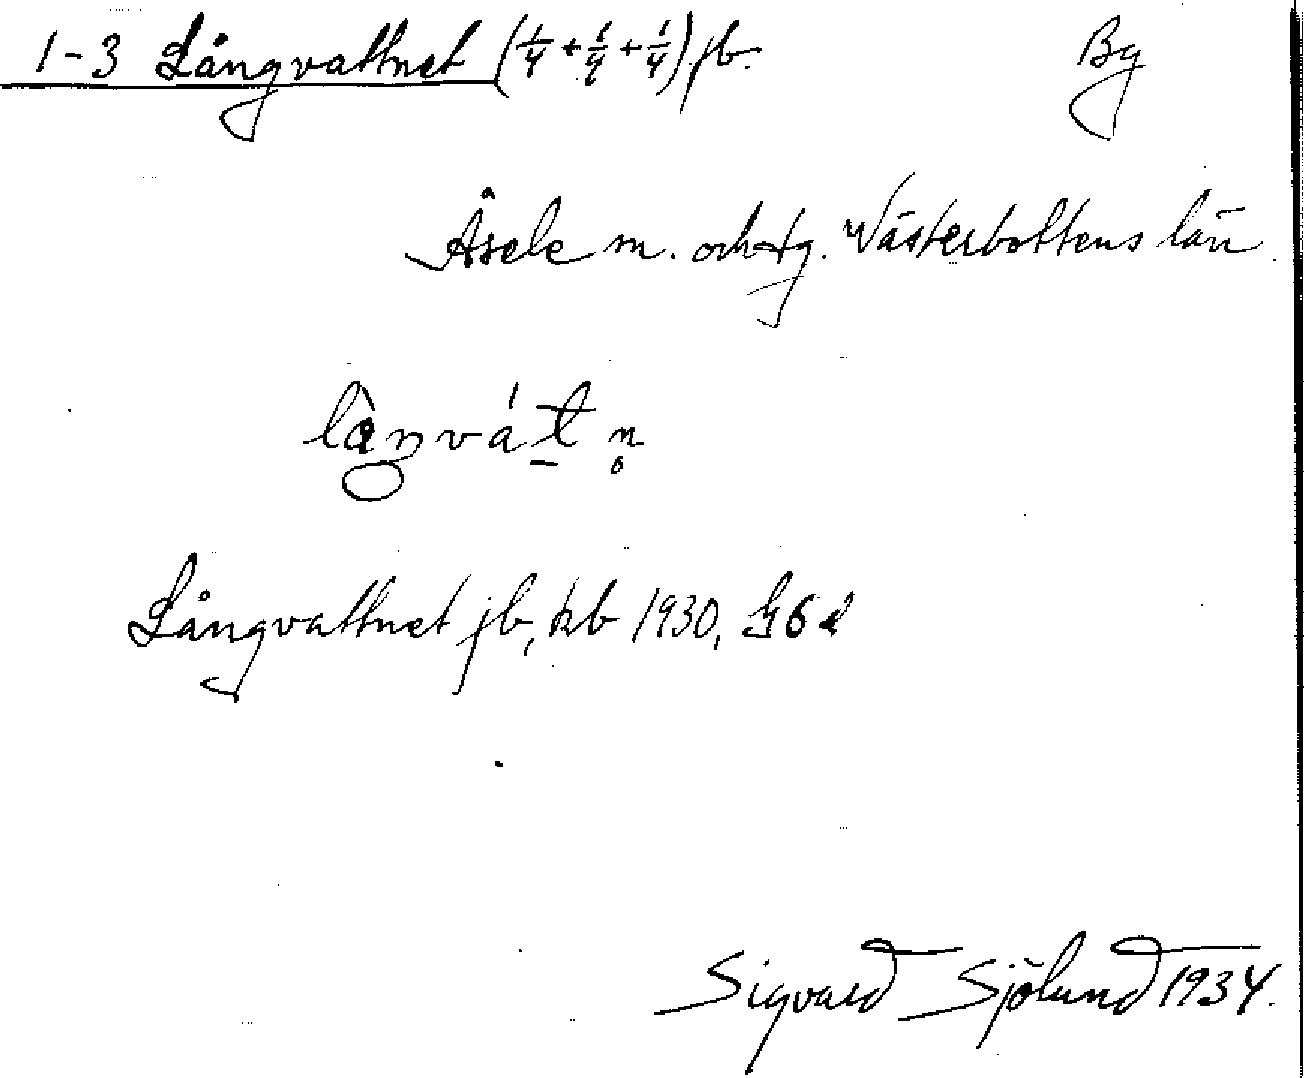 1-3 Långvattnet (1/4 + 1/4 + 1/4) jb. By
Åsele sn. och tg. Västerbottens län.
Långvattnet jb, kb 1930, G6d
Sigvard Sjölund 1934.